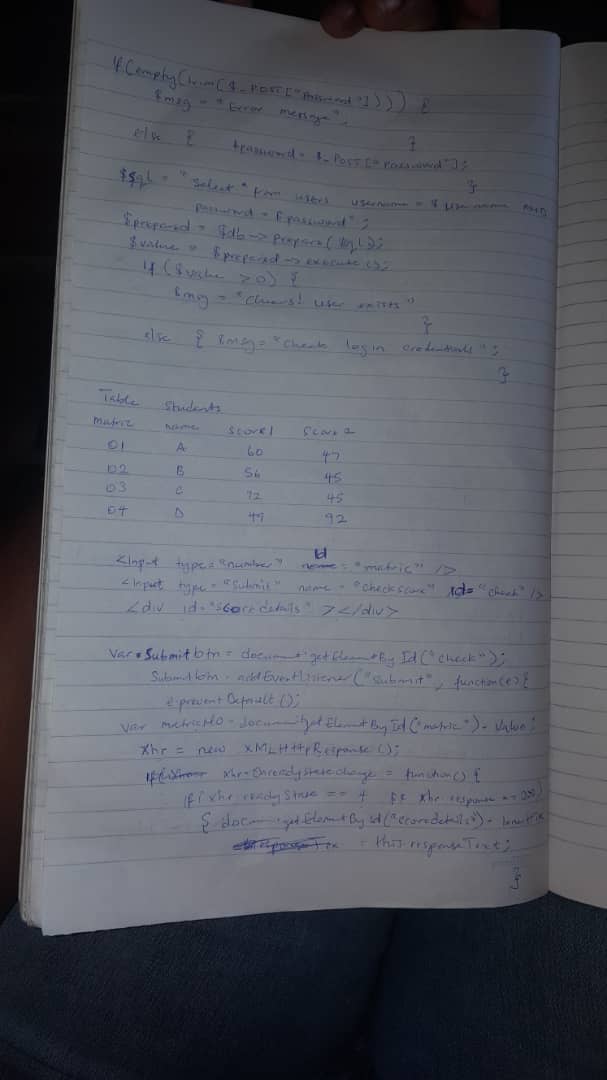 if (empty(trim($_POST["Password"]))) {
$msg = "Error message";
}
else { $password = $_POST["Password"];
}
$sql = "Select * from users username = $username
password = $password";
$prepared = $db -> prepare($sql);
$value = $prepared -> execute();
if ($value > 0) {
$msg = "Cheers! user exists"
}
else { $msg = "Check login credentials";
}
Table Students
matric name score1 score 2
01 A 60 47
02 B 56 45
03 C 72 45
04 D 49 92
<Input type = "number" id = "matric" />
<Input type = "Submit" name = "checkscore" id = "check" />
<div id = "score details" ></div>
Var Submit btn = document.getElementById("check");
Submit btn . addEventListener("submit", function(e){
e.prevent Default ();
Var matricNo = document.getElementById("matric").value;
Xhr = new XMLHttpResponse ();
xhr.Onreadystatechange = function() {
if (xhr.readyState == 4 && xhr.response == 200)
{ document.getElementById("scoredetails").
= this.responseText;
}